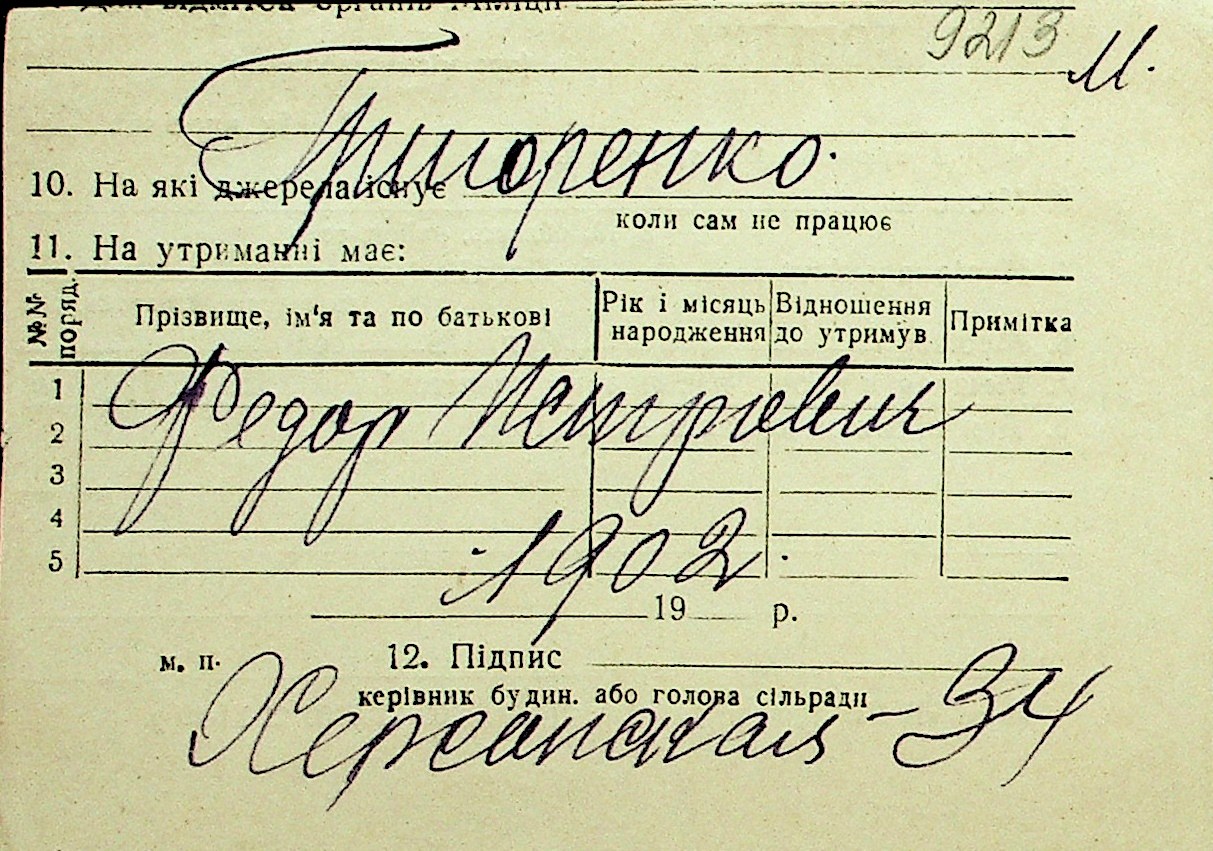 Для відміток органів міліції
9213 М.
Григоренко.
10. На які джерела існує
коли сам не працює
11. На утриманні має:
№№ поряд. Прізвище, ім'я та по батькові Рік і місяць народження Відношення до утримув. Примітка
1
Федор Петрович
2
3
4
5
1902.
19 р.
м. п. 12. Підпис
керівник будин. або голова сільради
Херсонская – 34